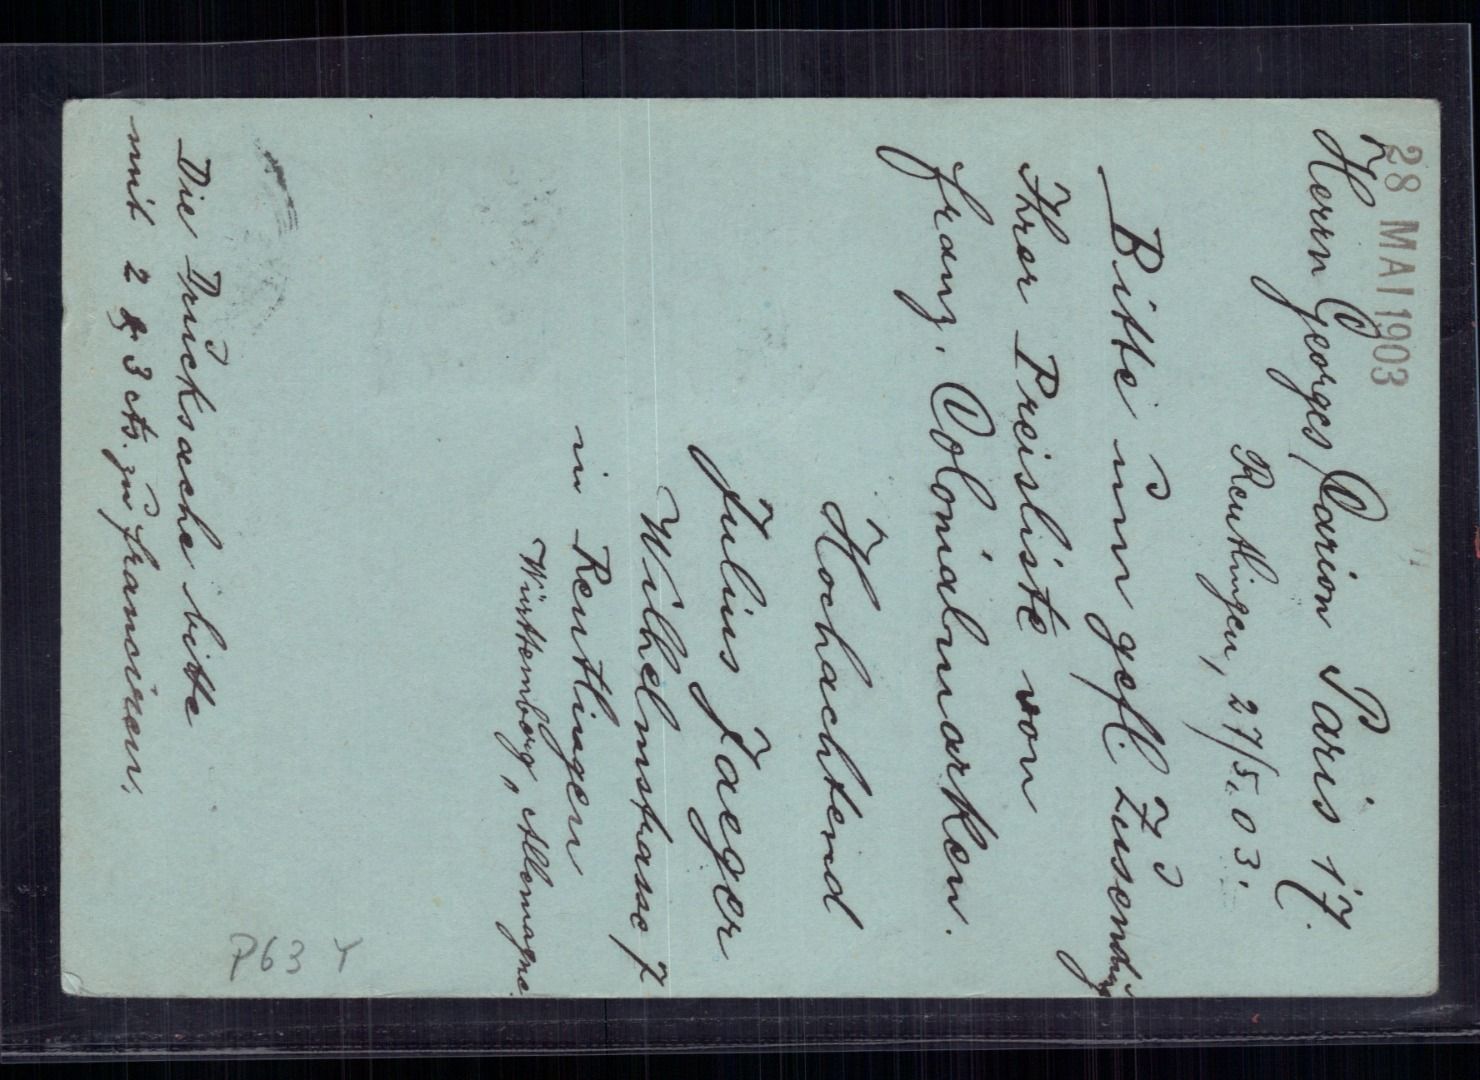 28 MAI 1903
Herrn Georges Carion Paris 17.
Reutlingen, 27/5. 03.
Bitte um gefl. Zusendung
Ihrer Preisliste von
franz. Colonialmarken.
Hochachtend
Julius Jaeger
Wilhelmstrasse 7
in Reutlingen
Württemberg, Allemagne.
Die Drucksache bitte
mit 2 & 3 cts. zu francieren.
P63 Y